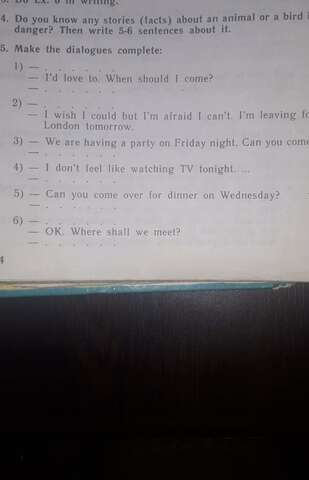 Do Ex. 6 in writing.
4. Do you know any stories (facts) about an animal or a bird i
danger? Then write 5-6 sentences about it.
5. Make the dialogues complete:
1) — . . . . . .
— I'd love to. When should I come?
— . . . . . .
2) — . . . . . .
— I wish I could but I'm afraid I can't. I'm leaving fo
London tomorrow.
3) — We are having a party on Friday night. Can you come
— . . . . . .
4) — I don't feel like watching TV tonight. ...
— . . . . . .
5) — Can you come over for dinner on Wednesday?
— . . . . . .
6) — . . . . . .
— OK. Where shall we meet?
— . . . . . .
4